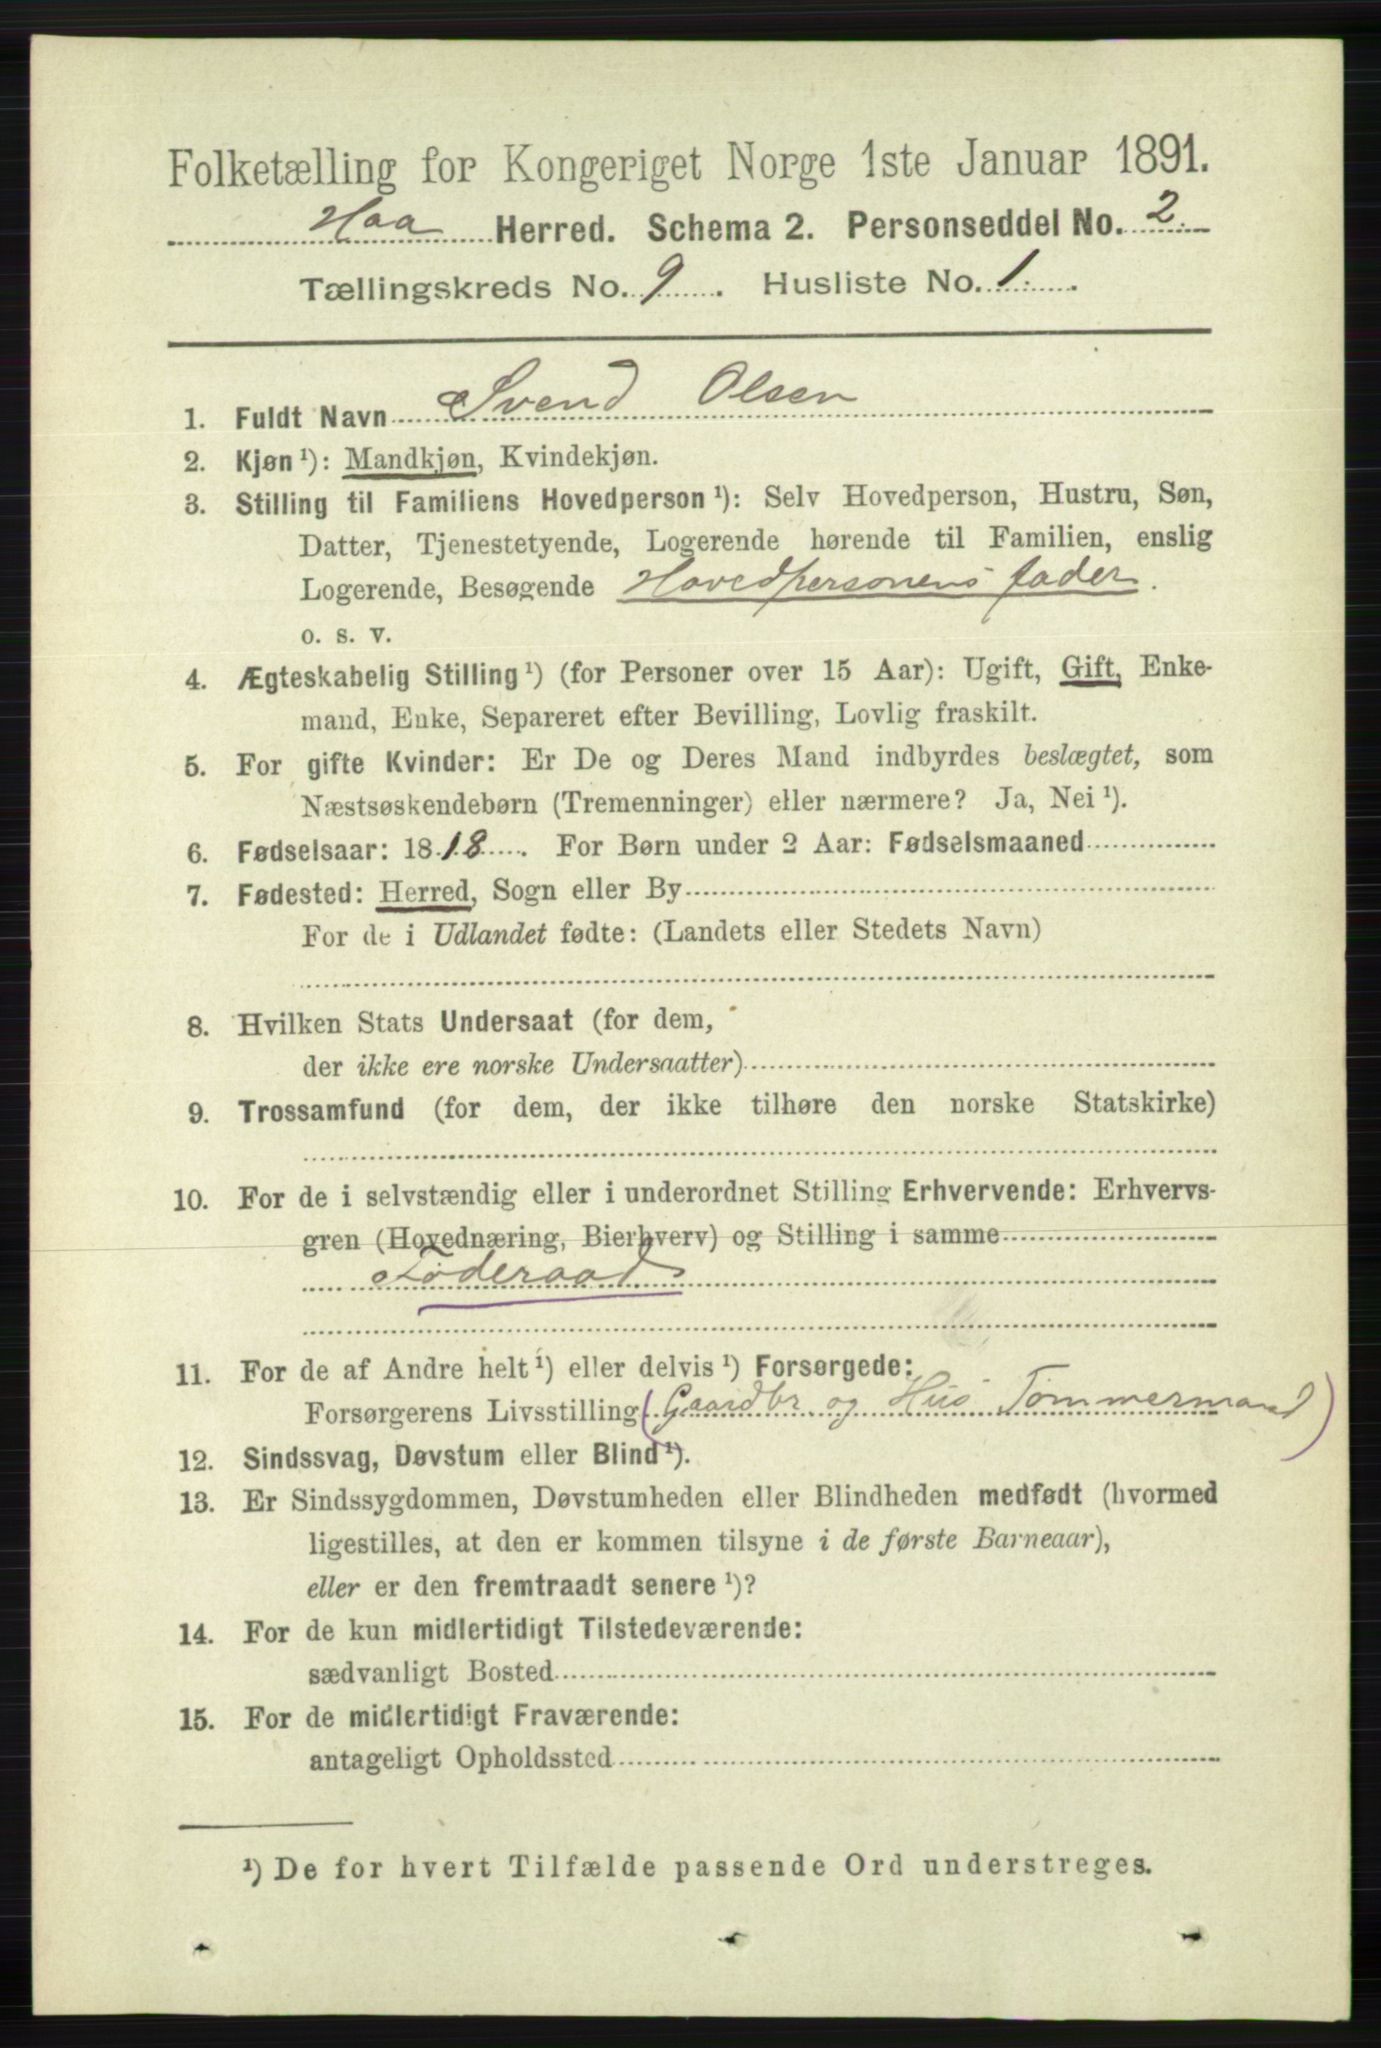 Folketælling for Kongeriget Norge 1ste Januar 1891.
Haa Herred. Schema 2. Personseddel No. 2.
Tællingskreds No. 9. Husliste No. 1.
1. Fuldt Navn Svend Olsen
2. Kjøn ¹): Mandkjøn, Kvindekjøn.
3. Stilling til Familiens Hovedperson ¹): Selv Hovedperson, Hustru, Søn,
Datter, Tjenestetyende, Logerende hørende til Familien, enslig
Logerende, Besøgende Hovedpersonens fader.
o. s. v.
4. Ægteskabelig Stilling ¹) (for Personer over 15 Aar): Ugift, Gift, Enke-
mand, Enke, Separeret efter Bevilling, Lovlig fraskilt.
5. For gifte Kvinder: Er De og Deres Mand indbyrdes beslægtet, som
Næstsøskendebørn (Tremenninger) eller nærmere? Ja, Nei ¹).
6. Fødselsaar: 1818. For Børn under 2 Aar: Fødselsmaaned
7. Fødested: Herred, Sogn eller By
For de i Udlandet fødte: (Landets eller Stedets Navn)
8. Hvilken Stats Undersaat (for dem,
der ikke ere norske Undersaatter)
9. Trossamfund (for dem, der ikke tilhøre den norske Statskirke)
10. For de i selvstændig eller i underordnet Stilling Erhvervende: Erhvervs-
gren (Hovednæring, Bierhverv) og Stilling i samme
Føderaad
11. For de af Andre helt ¹) eller delvis ¹) Forsørgede:
Forsørgerens Livsstilling (Gaardbr og Hus Tømmermand)
12. Sindssvag, Døvstum eller Blind ¹).
13. Er Sindssygdommen, Døvstumheden eller Blindheden medfødt (hvormed
ligestilles, at den er kommen tilsyne i de første Barneaar),
eller er den fremtraadt senere ¹)?
14. For de kun midlertidigt Tilstedeværende:
sædvanligt Bosted
15. For de midlertidigt Fraværende:
antageligt Opholdssted
¹) De for hvert Tilfælde passende Ord understreges.